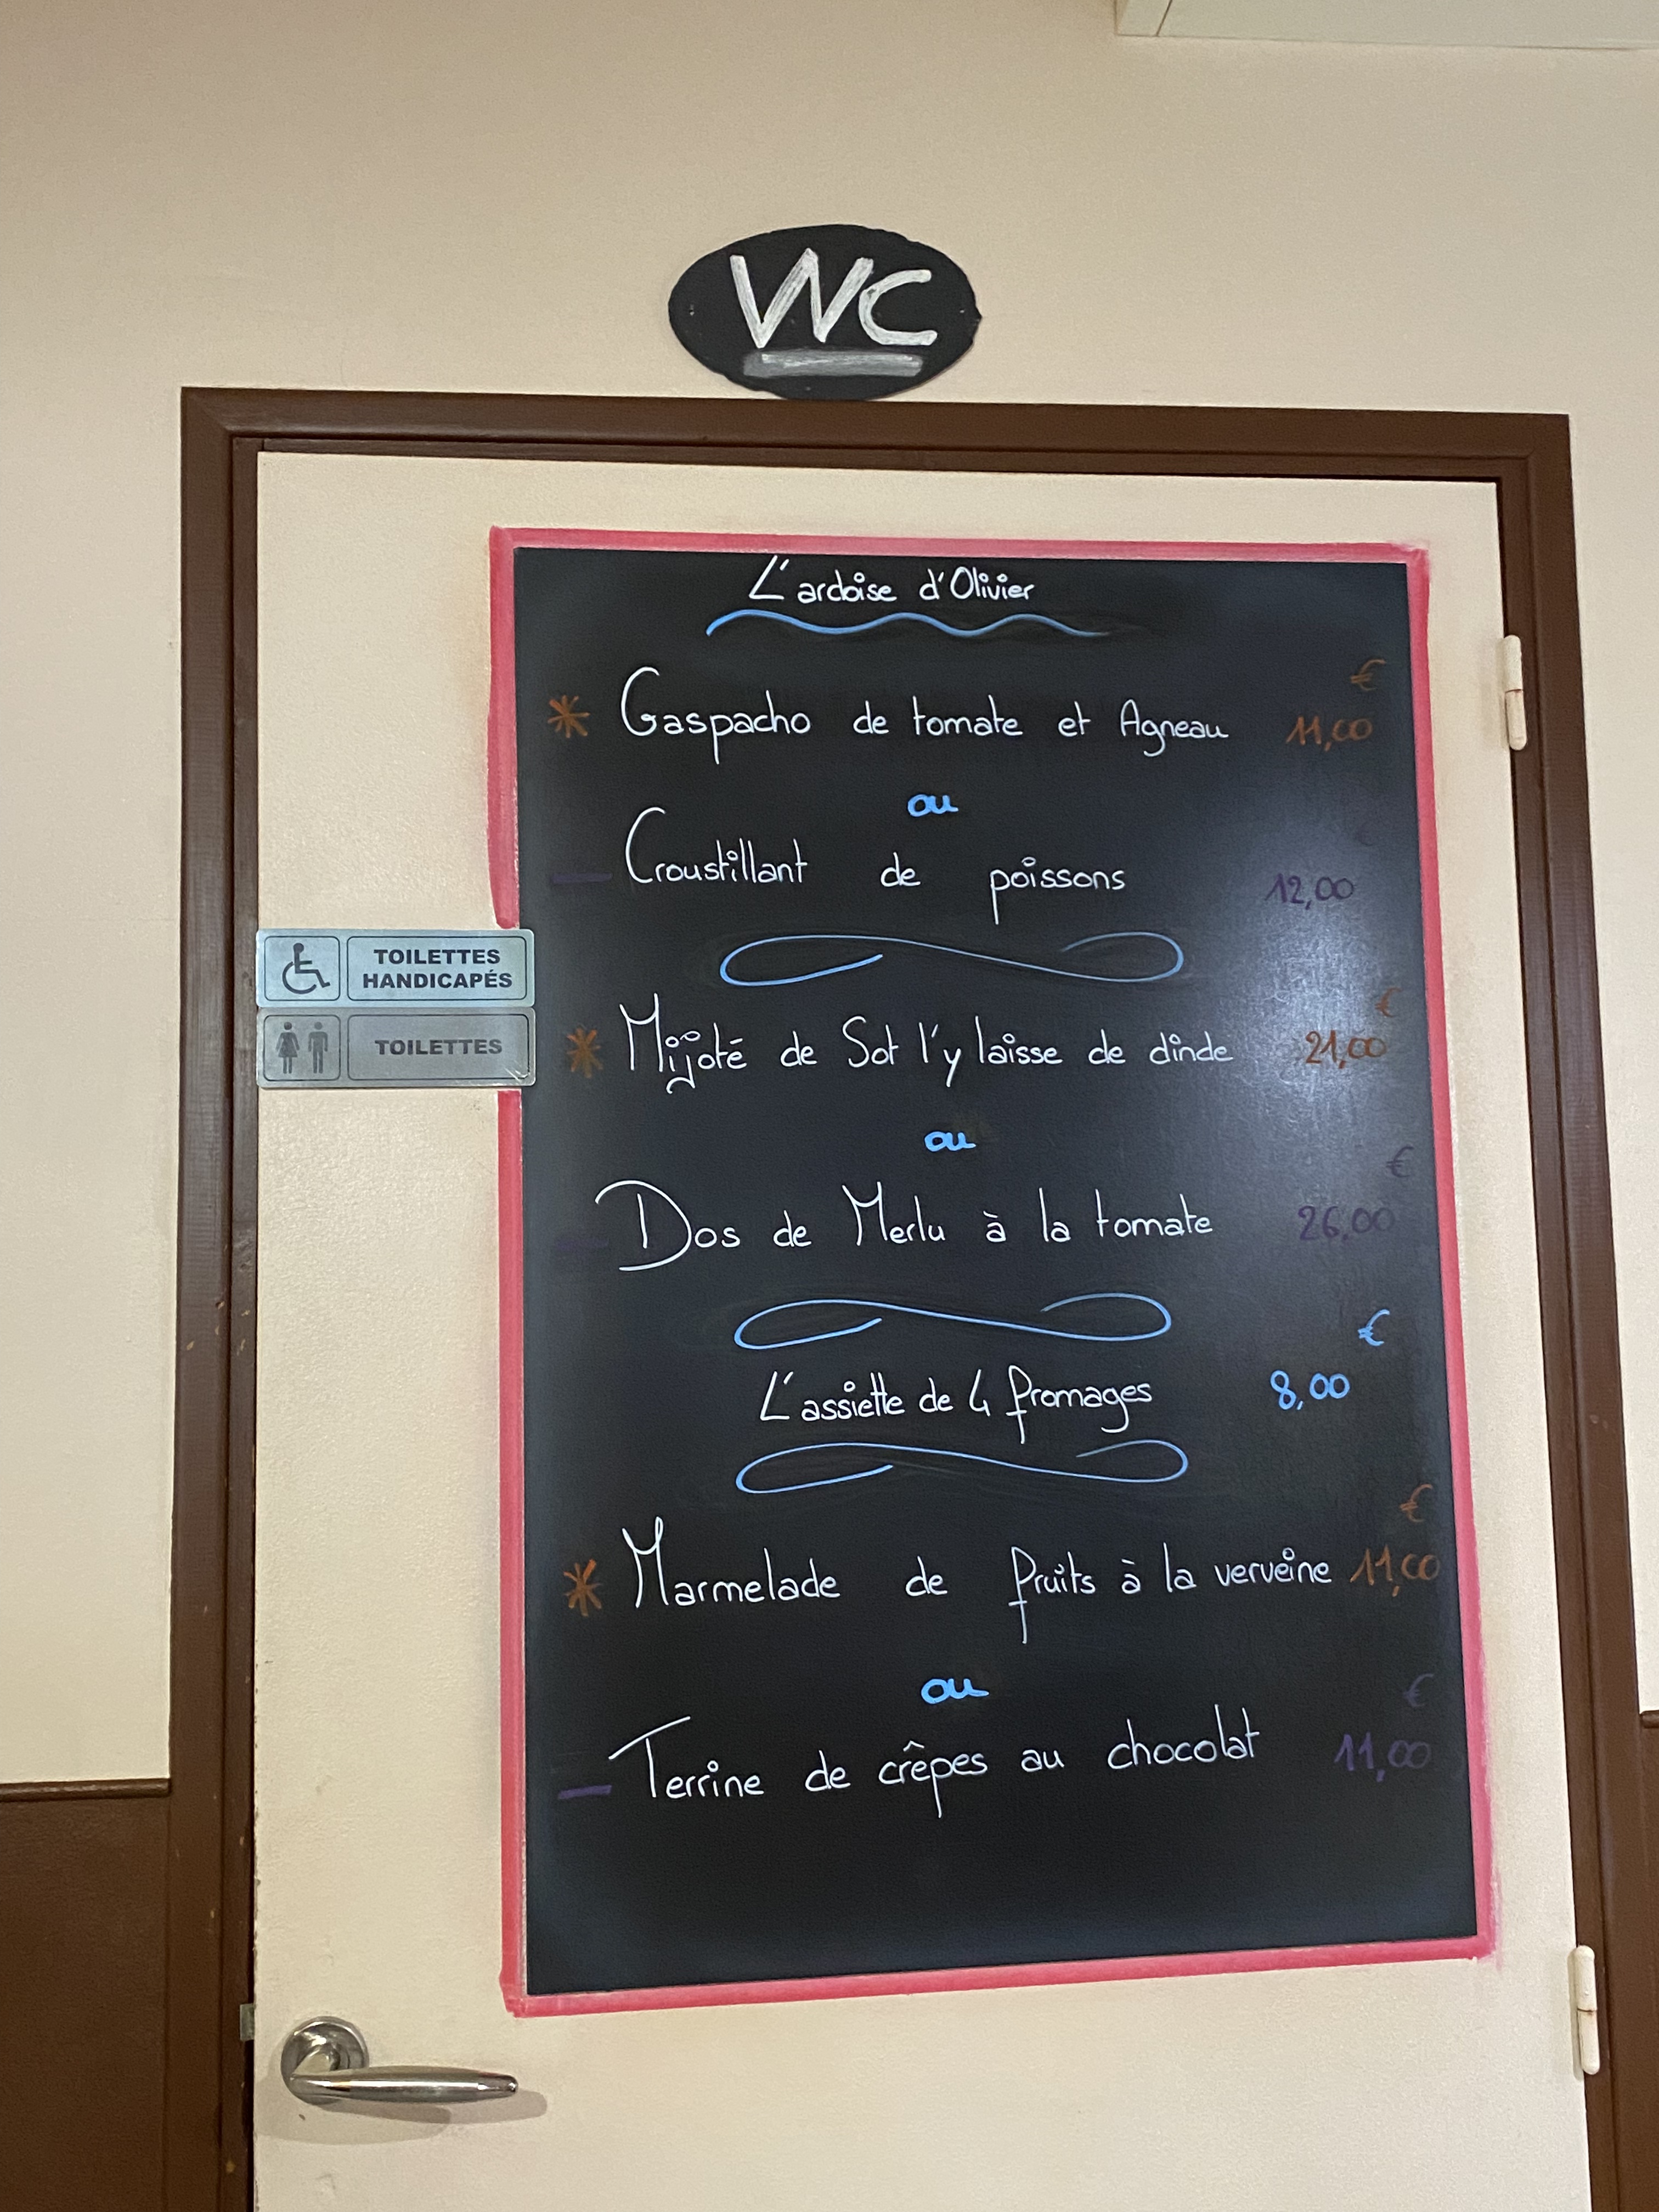 WC
L'ardoise d'Olivier
€
* Gaspacho de tomate et Agneau 11,00
ou
€
— Croustillant de poissons 12,00
TOILETTES
HANDICAPÉS
TOILETTES
€
* Mijoté de Sot l'y laisse de dinde 21,00
ou
€
— Dos de Merlu à la tomate 26,00
€
L'assiette de 4 fromages 8,00
€
* Marmelade de fruits à la verveine 11,00
ou
€
— Terrine de crêpes au chocolat 11,00